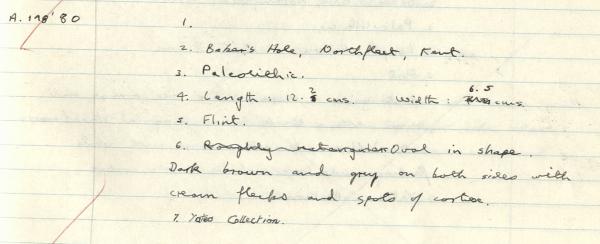 A. 118'80
1.
2. Baker's Hole, Northfleet, Kent.
3. Paleolithic.
4. Length: 12.2 cms. Width: 6.5 cms.
5. Flint.
6. Roughly rectangular Oval in shape.
Dark brown and grey on both sides with
cream flecks and spots of cortex.
7. Yates Collection.